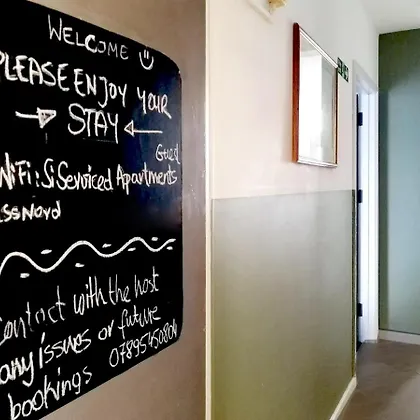 WELCOME
PLEASE ENJOY YOUR
STAY
Guest
WiFi: Si Serviced Apartments
Contact with the host
any issues or future
bookings 07895450804